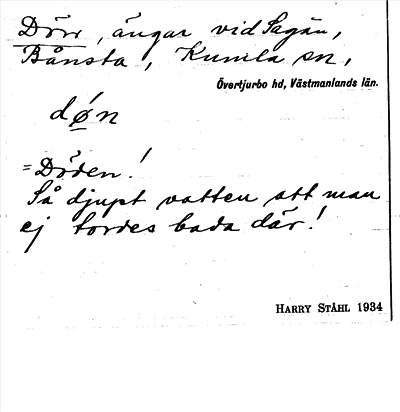 Dörr, ängar vid Sagån,
Bånsta, Kumla sn,
Övertjurbo hd, Västmanlands län.
dǿn
=Döden!
Så djupt vatten att man
ej tordes bada där!
HARRY STÅHL 1934